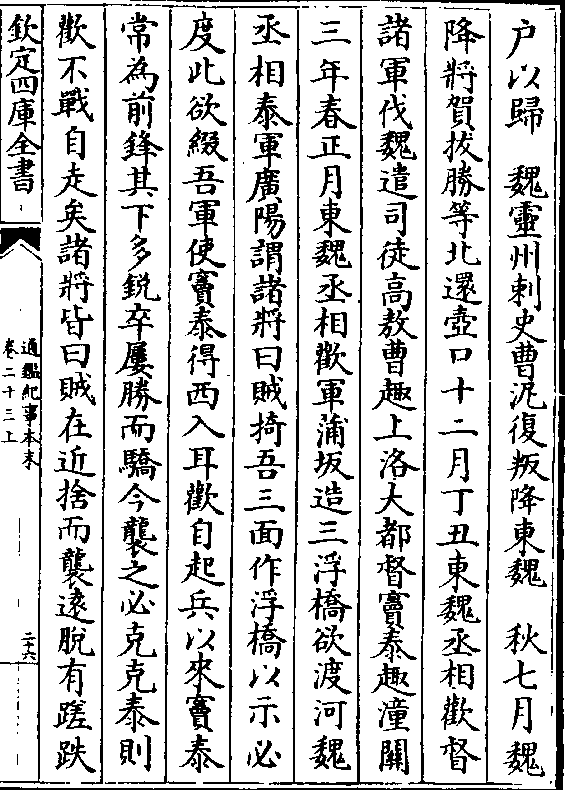 户以歸　魏靈州刺史曹泥復叛降東魏　秋七月魏
降將賀拔勝等北還壺口十二月丁丑東魏丞相歡督
諸軍伐魏遣司徒高敖曹趣上洛大都督竇泰趣潼關
三年春正月東魏丞相歡軍蒲坂造三浮橋欲渡河魏
丞相泰軍廣陽謂諸將曰賊掎吾三面作浮橋以示必
度此欲綴吾軍使竇泰得西入耳歡自起兵以來竇泰
常為前鋒其下多銳卒屢勝而驕今襲之必克克泰則
歡不戰自走矣諸將皆曰賊在近捨而襲逺脫有蹉跌
欽定四庫全書
通鑑紀事本末
卷二十三上
二十六